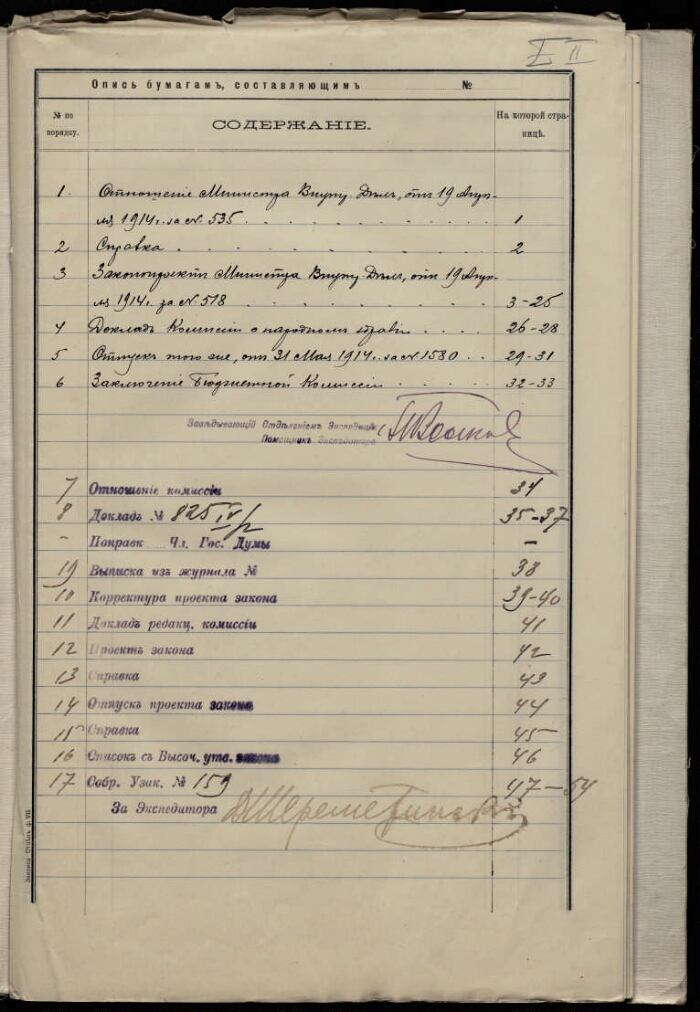 E II
Опись бумагамъ, составляющимъ №
№ по порядку.
СОДЕРЖАНІЕ.
На которой стра-
ницѣ.
1. Отношеніе Министра Внутр. Дѣлъ, отъ 19 Апрѣ-
ля 1914 г. за № 535 . . . . . . . 1
2 Справка . . . . . . . . . 2
3 Законопроектъ Министра Внутр. Дѣлъ, отъ 19 Апрѣ-
ля 1914 г. за № 518 . . . . . . . 3-25
4 Докладъ Комиссіи о народномъ здравіи . . . . 26-28
5 Отпускъ того же, отъ 31 Мая 1914 г. за № 1580 . . 29-31
6 Заключеніе Бюджетной Комиссіи . . . . 32-33
Завѣдывающій Отдѣленіемъ Экспедиціи,
Помощникъ Экспедитора
7 Отношеніе комиссіи 34
8 Докладъ № 825 IV/2 35-37
- Поправк Чл. Гос. Думы -
19 Выписка изъ журнала № 38
10 Корректура проекта закона 39-40
11 Докладъ редакц. комиссіи 41
12 Проектъ закона 42
13 Справка 43
14 Отпускъ проекта закона 44
15 Справка 45
16 Списокъ съ Высоч. утв. закона 46
17 Собр. Узак. № 159 47-54
За Экспедитора